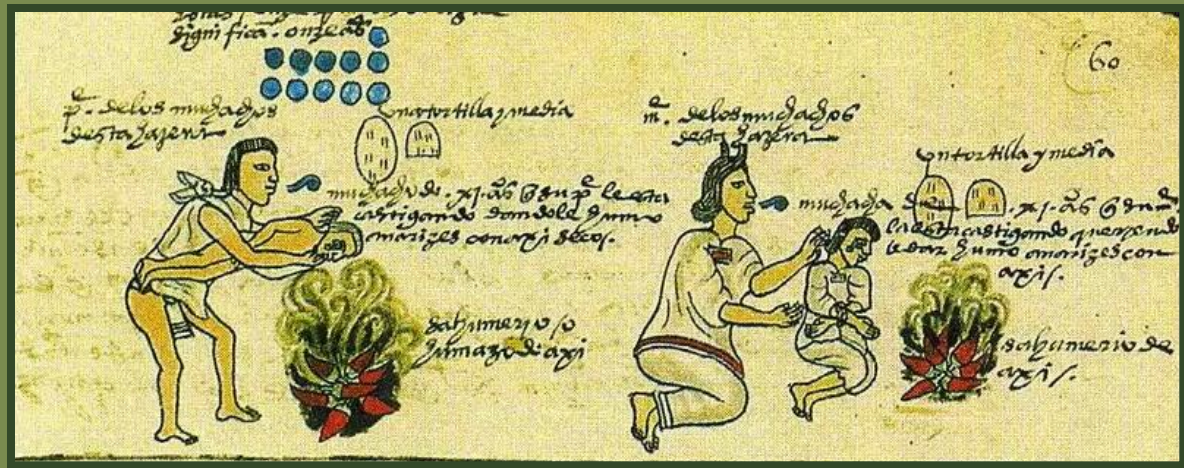 significa. onze aºs
60
pᵉ. de los muchachos
desta hazera
una tortilla y media
muchacho de .xi. aºs q̃ su pᵉ le esta
castigando dandole humo
a narizes con axi secos.
sahumerio o
humazo de axi
mᵉ. de los muchachos
desta hazera
una tortilla y media
muchacha de .xi. aºs q̃ su mᵉ.
la esta castigando queriendo
le dar humo a narizes con
axis.
sahumerio de
axis.